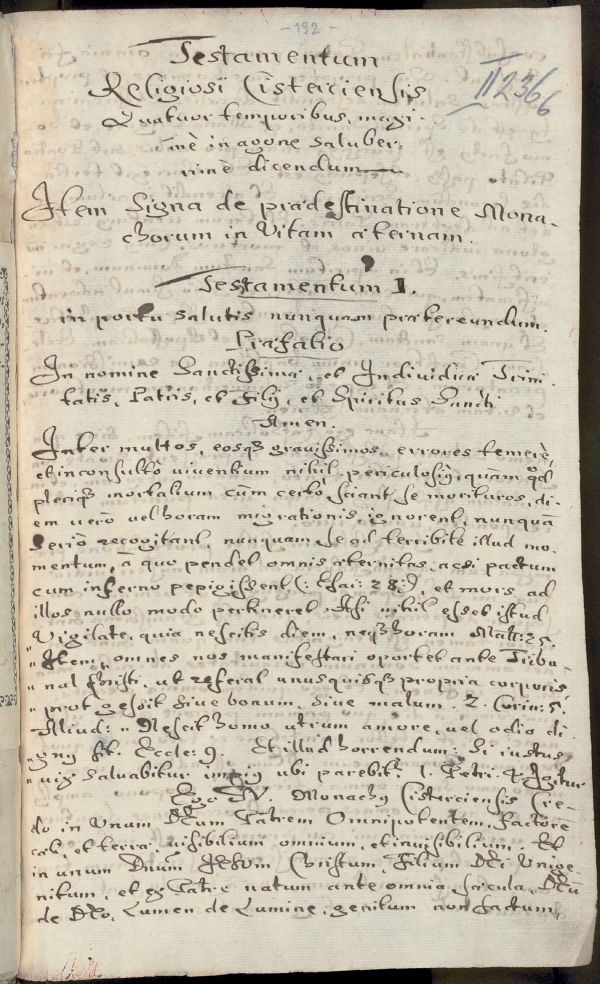 - 192 -
Testamentum
Religiosi Cisterciensis
II 2366
Quatuor temporibus, maxi-
mè in agone saluber-
rimè dicendum
Item Signa de prædestinatione Mona-
chorum in Vitam æternam.
Testamentum I.
in portu salutis nunquam prætereundum.
Præfatio
In nomine Sanctissimæ, et Individuæ Trini
tatis, Patris, et Filij, et Spiritus Sancti
Amen.
Inter multos, eosq3 grauissimos errores temerè,
et inconsultò viventium nihil periculosi9, quàm qd
pleriq3 mortalium cùm certò sciant se morituros, di-
em verò vel horam migrationis ignorent, nunquā
seriò recogitant, nunquam se ad terribile illud mo-
mentum, à quo pendet omnis æternitas, acsi pactum
cum inferno pepigissent (: Esai: 28 :), et mors ad
illos nullo modo pertineret. Ac si nihil esset istud
Vigilate, quia nescitis diem, neq3 horam Matt: 25.
" Item, omnes nos manifestari oportet ante Tribu-
" nal Christi, ut referat unusquisq3 propria corporis,
" prout gessit sive bonum, sive malum. 2. Corin: 5.
Aliud: " Nescit homo utrum amore, vel odio di
" gn9 sit. Eccle: 9. Et illud horrendum: Si iustus
" vix salvabitur impi9 ubi parebit? 1. Petri. 4. Igitur
Ego N. Monach9 Cisterciensis Cre-
do in Unum Deum Patrem Omnipotentem, factorē
cœli, et terræ, visibilium omnium, et invisibilium. Et
in unum Dnum Jesum Christum, Filium Dei Unige-
nitum, et ex Patre natum ante omnia sæcula, Deū
de Deo, Lumen de Lumine, genitum non factum,